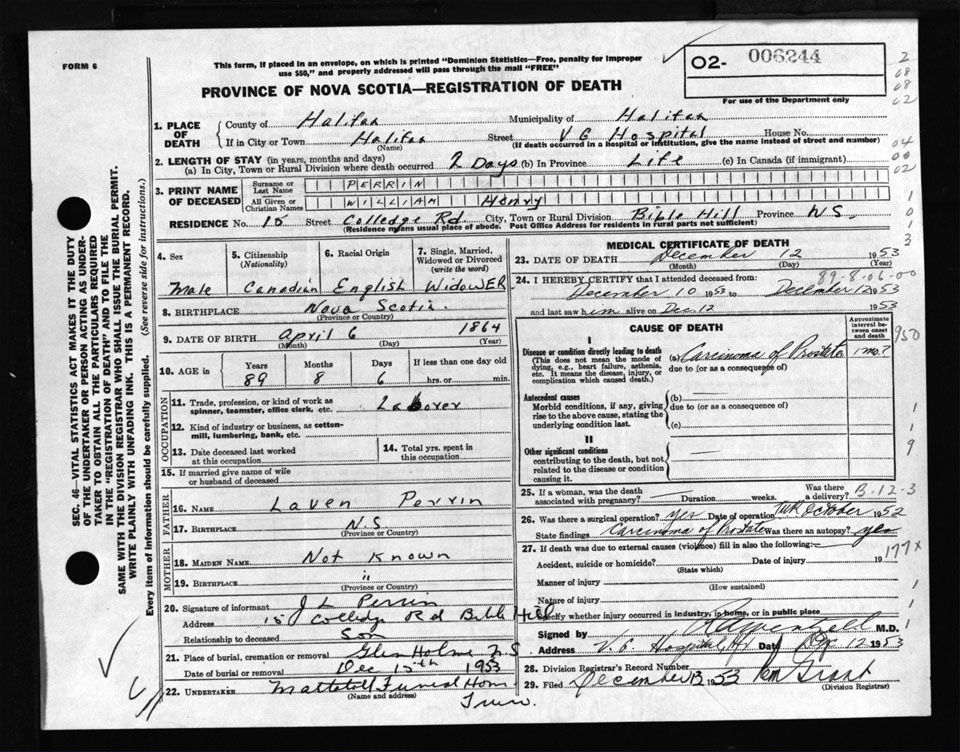 FORM 6
This form, if placed in an envelope, on which is printed "Dominion Statistics—Free, penalty for improper
use $50," and properly addressed will pass through the mail "FREE"
PROVINCE OF NOVA SCOTIA—REGISTRATION OF DEATH
O2- 006244
For use of the Department only
2
08
08
02
04
00
02
1
0
1
3
1. PLACE OF DEATH
County of Halifax Municipality of Halifax
If in City or Town Halifax Street V G Hospital House No.
(Name) (If death occurred in a hospital or institution, give the name instead of street and number)
2. LENGTH OF STAY (in years, months and days)
(a) In City, Town or Rural Division where death occurred 2 Days (b) In Province Life (c) In Canada (if immigrant)
3. PRINT NAME OF DECEASED
Surname or Last Name PERRIN
All Given or Christian Names WILLIAM Henry
RESIDENCE No. 15 Street Colledge Rd. City, Town or Rural Division Bible Hill Province N.S.
(Residence means usual place of abode. Post Office Address for residents in rural parts not sufficient)
4. Sex
Male
5. Citizenship (Nationality)
Canadian
6. Racial Origin
English
7. Single, Married, Widowed or Divorced (write the word)
WidowER
8. BIRTHPLACE Nova Scotia
(Province or Country)
9. DATE OF BIRTH April 6 1864
(Month) (Day) (Year)
10. AGE in Years Months Days If less than one day old
89 8 6 hrs. or min.
OCCUPATION
11. Trade, profession, or kind of work as spinner, teamster, office clerk, etc. Laborer
12. Kind of industry or business, as cotton-mill, lumbering, bank, etc.
13. Date deceased last worked at this occupation
14. Total yrs. spent in this occupation
15. If married give name of wife or husband of deceased
FATHER
16. NAME Laven Perrin
17. BIRTHPLACE N.S.
(Province or Country)
MOTHER
18. MAIDEN NAME Not Known
19. BIRTHPLACE "
(Province or Country)
20. Signature of informant J L Perrin
Address 15 Colledge Rd Bible Hill
Relationship to deceased Son
21. Place of burial, cremation or removal Glen Holme N.S.
Date of burial or removal Dec 15th 1953
22. UNDERTAKER Mattatall Funeral Home
(Name and address)
Truro.
MEDICAL CERTIFICATE OF DEATH
23. DATE OF DEATH December 12 1953
(Month) (Day) (Year)
89-8-06-00
24. I HEREBY CERTIFY that I attended deceased from:
December 10 1953 to December 12 1953
and last saw him alive on Dec. 12 1953
CAUSE OF DEATH
Approximate interval between onset and death
950
I
Disease or condition directly leading to death
(This does not mean the mode of dying, e.g., heart failure, asthenia, etc. It means the disease, injury, or complication which caused death.)
(a) Carcinoma of Prostate 1 mo.?
due to (or as a consequence of)
Antecedent causes
Morbid conditions, if any, giving rise to the above cause, stating the underlying condition last.
(b)
due to (or as a consequence of)
(c)
1
1
9
II
Other significant conditions
contributing to the death, but not related to the disease or condition causing it.
25. If a woman, was the death associated with pregnancy? Duration weeks. Was there a delivery?
B-12-3
26. Was there a surgical operation? yes Date of operation October 1952
State findings Carcinoma of Prostate Was there an autopsy? yes
27. If death was due to external causes (violence) fill in also the following:—
Accident, suicide or homicide? Date of injury 19
(State which)
177x
Manner of injury
(How sustained)
Nature of injury
Specify whether injury occurred in industry, in home, or in public place
1
1
1
Signed by M.D.
Address V.G. Hospital, Hx Date Dec 12 1953
28. Division Registrar's Record Number
29. Filed December 13 1953 Grant
(Division Registrar)
SEC. 46—VITAL STATISTICS ACT MAKES IT THE DUTY
OF THE UNDERTAKER OR PERSON ACTING AS UNDER-
TAKER TO OBTAIN ALL THE PARTICULARS REQUIRED
IN THE "REGISTRATION OF DEATH" AND TO FILE THE
SAME WITH THE DIVISION REGISTRAR WHO SHALL ISSUE THE BURIAL PERMIT.
WRITE PLAINLY WITH UNFADING INK. THIS IS A PERMANENT RECORD.
Every item of information should be carefully supplied. (See reverse side for instructions.)